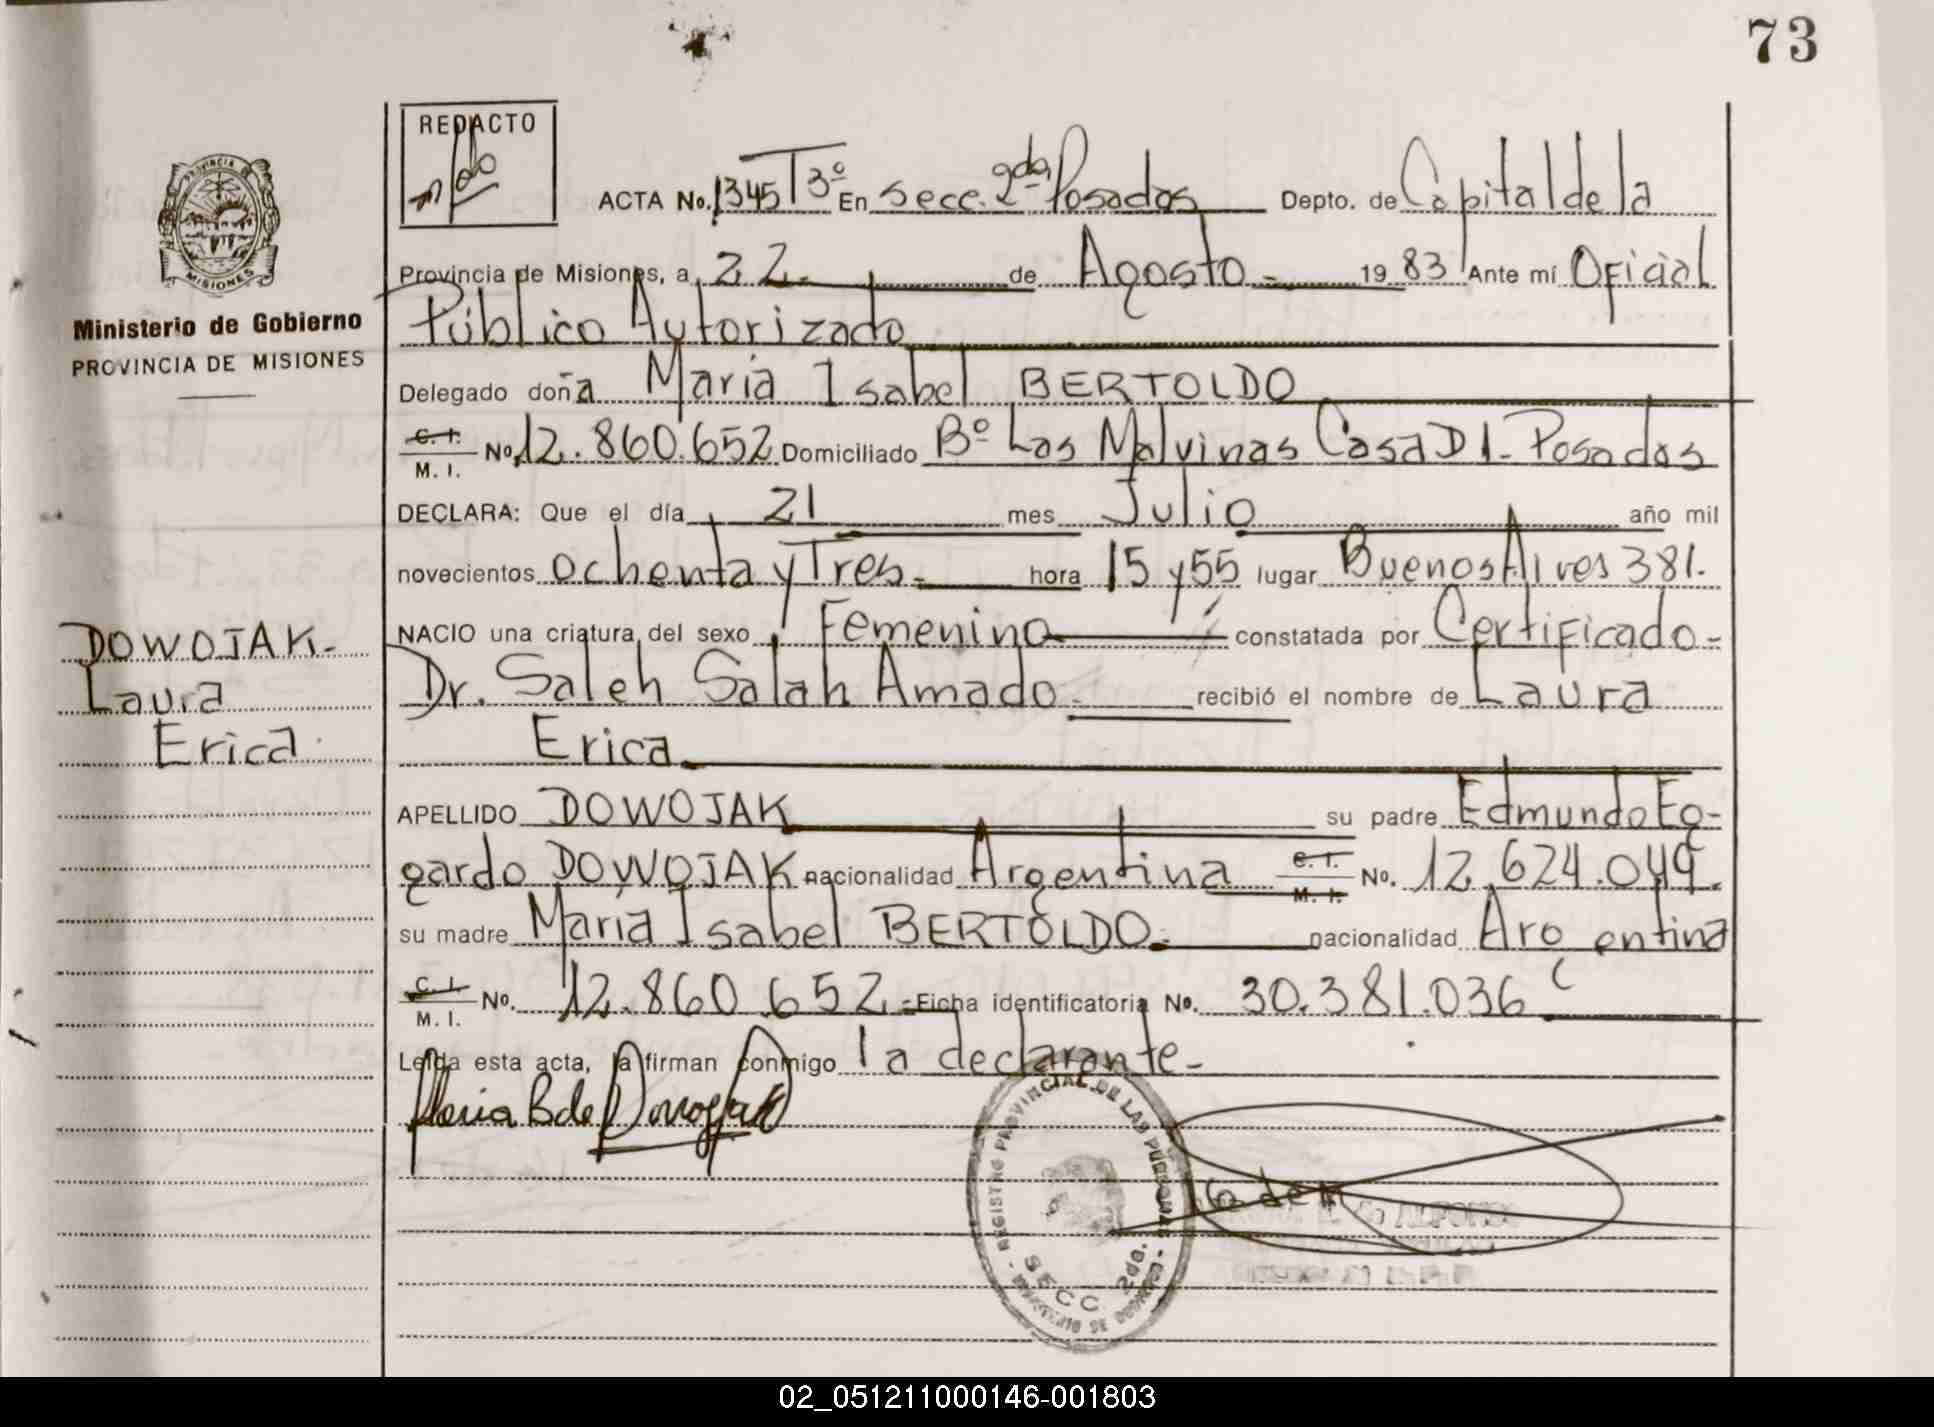 73
REDACTO
ACTA No. 1345 T 3º En Secc. 2da, Posadas Depto. de Capital de la
Provincia de Misiones, a 22.- de Agosto.- 19 83 Ante mí Oficial
Ministerio de Gobierno
PROVINCIA DE MISIONES
Público Autorizado
Delegado doña María Isabel BERTOLDO
C. I. M. I. No. 12.860.652 Domiciliado Bº Las Malvinas Casa D 1- Posadas
DECLARA: Que el día 21 mes Julio año mil
novecientos ochenta y Tres.- hora 15 y 55 lugar Buenos Aires 381.
NACIO una criatura del sexo Femenino constatada por Certificado.=
DOWOJAK-
Laura
Erica
Dr. Saleh Salah Amado.- recibió el nombre de Laura
Erica
APELLIDO DOWOJAK su padre Edmundo Eg-
gardo DOWOJAK nacionalidad Argentina C. I. M. I. No. 12.624.049.
su madre María Isabel BERTOLDO.- nacionalidad Argentina
C. I. M. I. No. 12.860.652.- Ficha identificatoria No. 30.381.036
Leída esta acta, la firman conmigo la declarante-
María B de Dowojak
REGISTRO PROVINCIAL DE LAS PERSONAS
SECC 2da.
02_051211000146-001803